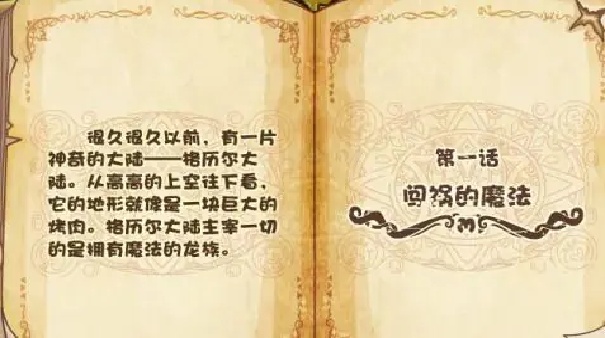 很久很久以前，有一片
神奇的大陆——格历尔大
陆。从高高的上空往下看，
它的地形就像是一块巨大的
烤肉。格历尔大陆主宰一切
的是拥有魔法的龙族。
第一话
闯祸的魔法